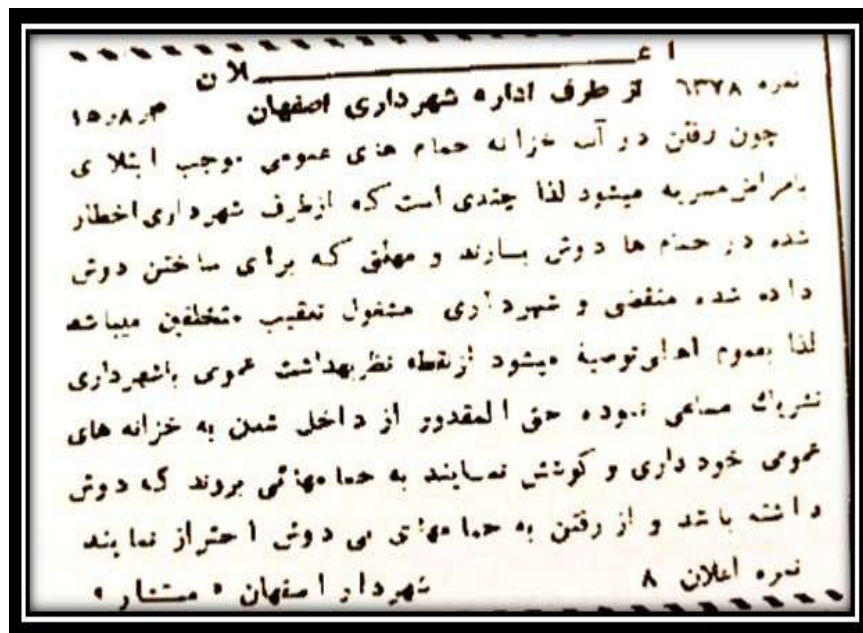 اعلان
نمره ۶۳۷۸ از طرف اداره شهرداری اصفهان
چون رفتن در آب خزانه حمام های عمومی موجب ابتلا ی
بامراض مسریه میشود لذا چندی است که ازطرف شهرداری اخطار
شده در حمام ها دوش بسازند و مهلتی که برای ساختن دوش
داده شده منقضی و شهرداری مشغول تعقیب متخلفین میباشد
لذا بعموم اهالی توصیه میشود ازنقطه نظربهداشت عمومی باشهرداری
تشریک مساعی نموده حتی المقدور از داخل شدن به خزانه های
عمومی خود داری و کوشش نمایند به حمامهائی بروند که دوش
داشته باشد و از رفتن به حمامهای بی دوش احتراز نمایند
نمره اعلان ۸ شهردار اصفهان « مستشار »